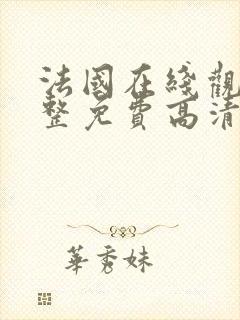 法國在綫觀
整免費高清
華秀妹